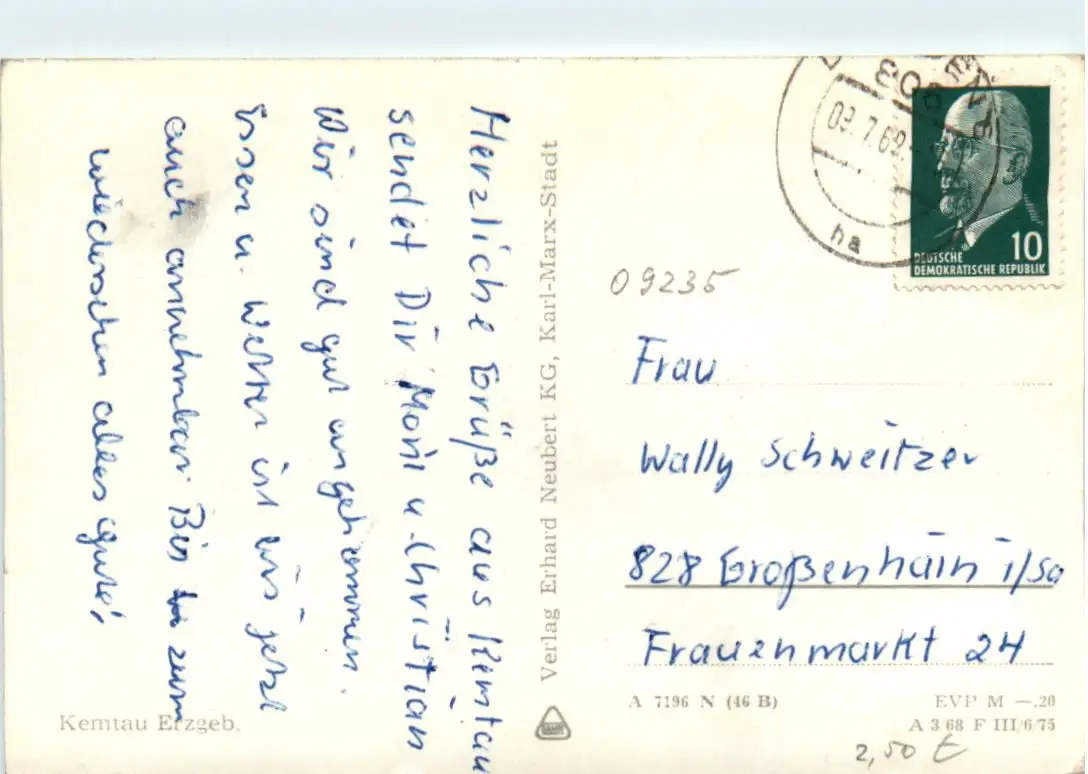 Herzliche Grüße aus Kemtau
sendet Dir Moni u. Christian
Wir sind gut angekommen.
Essen u. Wetter ist bis jetzt
auch annehmbar. Bis zum
wiedersehen alles gute!
Kemtau Erzgeb.
Verlag Erhard Neubert KG, Karl-Marx-Stadt
09.7.69
ha
10
DEUTSCHE
DEMOKRATISCHE REPUBLIK
09235
Frau
Wally Schweitzer
828 Großenhain i/Sa
Frauenmarkt 24
A 7196 N (46 B)
EVP M —.20
A 3/68 F III/6/75
2,50 €